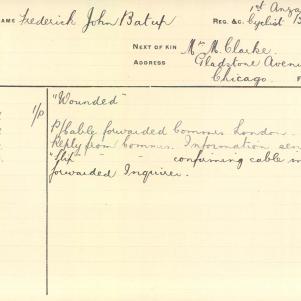 NAME Frederick John Batup
REG. &C. 1st Anza
Cyclist B
NEXT OF KIN Mrs M. Clarke.
ADDRESS Gladstone Avenu
Chicago.
1/P "Wounded"
P/Cably forwarded Commrs London.
Reply from Commrs. Information sen
confirming cable
forwarded Inquirer.